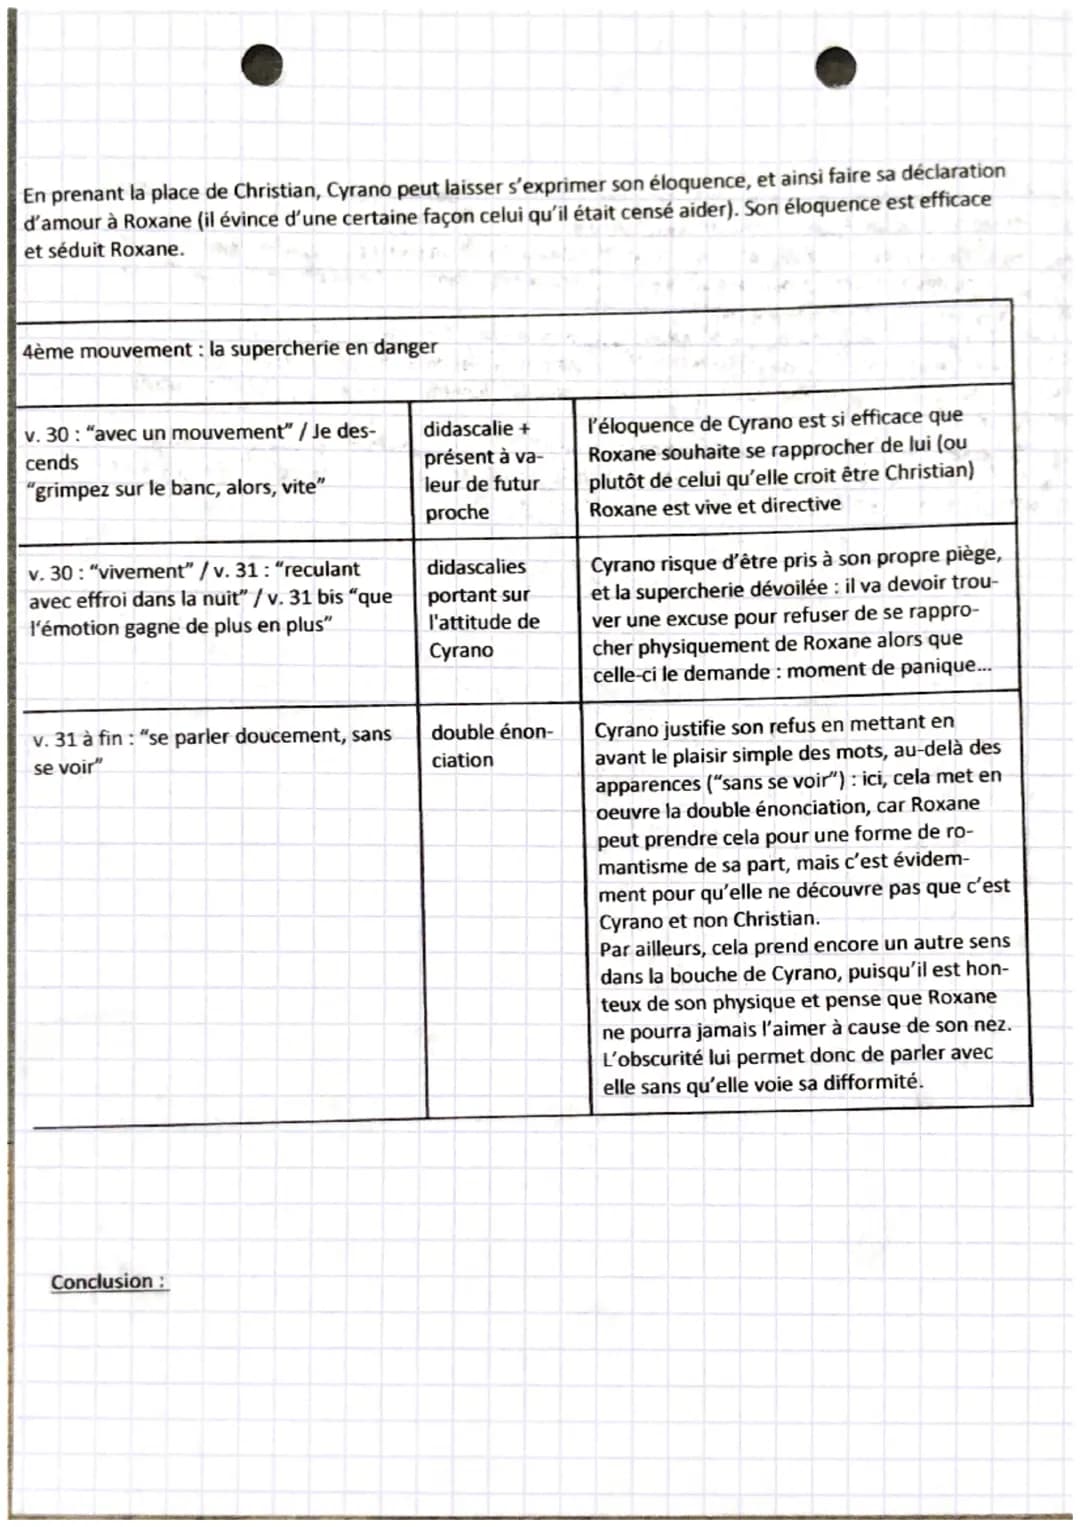 En prenant la place de Christian, Cyrano peut laisser s'exprimer son éloquence, et ainsi faire sa déclaration
d'amour à Roxane (il évince d'une certaine façon celui qu'il était censé aider). Son éloquence est efficace
et séduit Roxane.
4ème mouvement : la supercherie en danger
v. 30 : “avec un mouvement” / Je des-
cends
“grimpez sur le banc, alors, vite”
didascalie +
présent à va-
leur de futur
proche
l'éloquence de Cyrano est si efficace que
Roxane souhaite se rapprocher de lui (ou
plutôt de celui qu'elle croit être Christian)
Roxane est vive et directive
v. 30 : “vivement” / v. 31 : “reculant
avec effroi dans la nuit” / v. 31 bis “que
l'émotion gagne de plus en plus”
didascalies
portant sur
l'attitude de
Cyrano
Cyrano risque d'être pris à son propre piège,
et la supercherie dévoilée : il va devoir trou-
ver une excuse pour refuser de se rappro-
cher physiquement de Roxane alors que
celle-ci le demande : moment de panique...
v. 31 à fin : “se parler doucement, sans
se voir”
double énon-
ciation
Cyrano justifie son refus en mettant en
avant le plaisir simple des mots, au-delà des
apparences (“sans se voir”) : ici, cela met en
oeuvre la double énonciation, car Roxane
peut prendre cela pour une forme de ro-
mantisme de sa part, mais c'est évidem-
ment pour qu'elle ne découvre pas que c'est
Cyrano et non Christian.
Par ailleurs, cela prend encore un autre sens
dans la bouche de Cyrano, puisqu'il est hon-
teux de son physique et pense que Roxane
ne pourra jamais l'aimer à cause de son nez.
L'obscurité lui permet donc de parler avec
elle sans qu'elle voie sa difformité.
Conclusion :